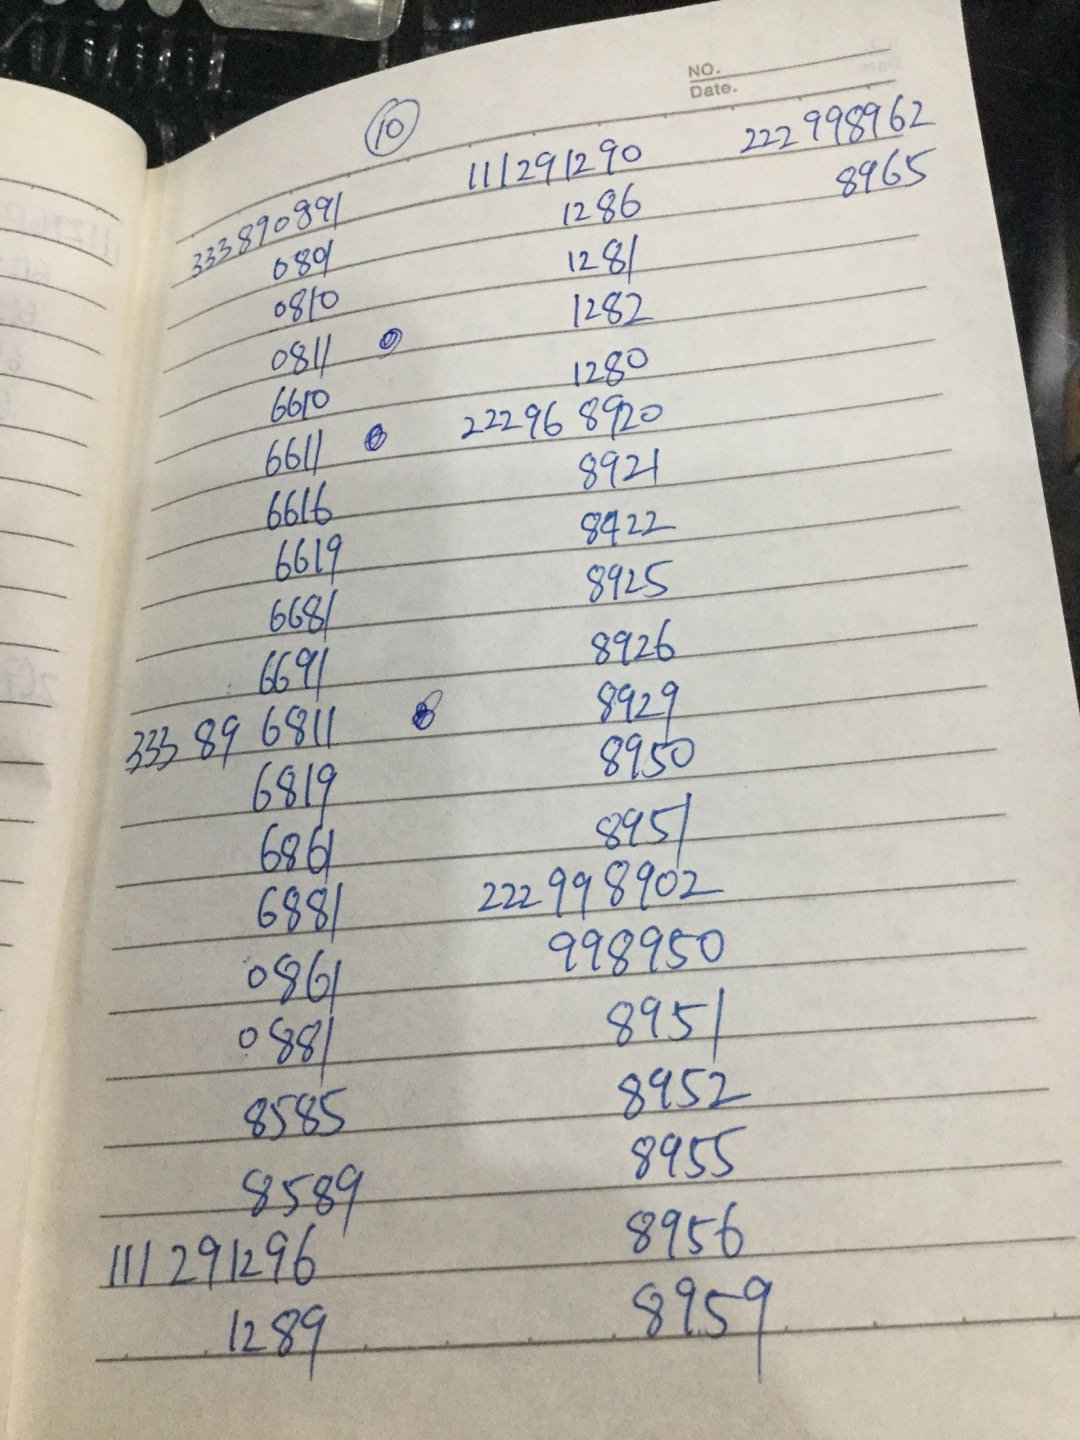 NO.
Date.
10
333 890891
0891
0810
0811
6610
6611
6616
6619
6681
6691
333 89 6811
6819
6861
6881
0861
0881
8585
8589
111 291296
1289
111291290
1286
1281
1282
1280
22296 8920
8921
8922
8925
8926
8929
8950
8951
222 998902
998950
8951
8952
8955
8956
8959
222 998962
8965